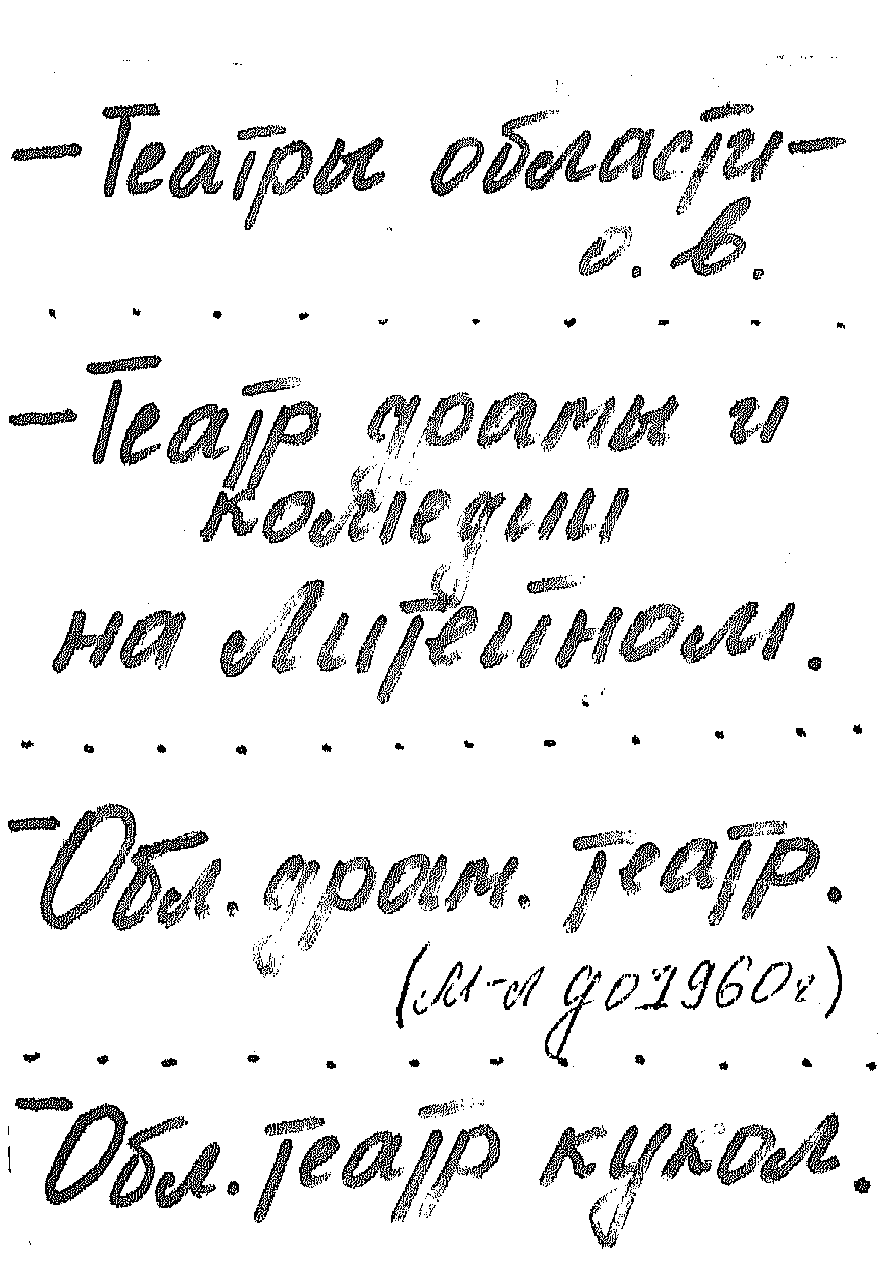 – Театры области –
о. в.
– Театр драмы и
комедии
на Литейном.
– Обл. драм. театр.
(м-л до 1960г)
– Обл. театр кукол.